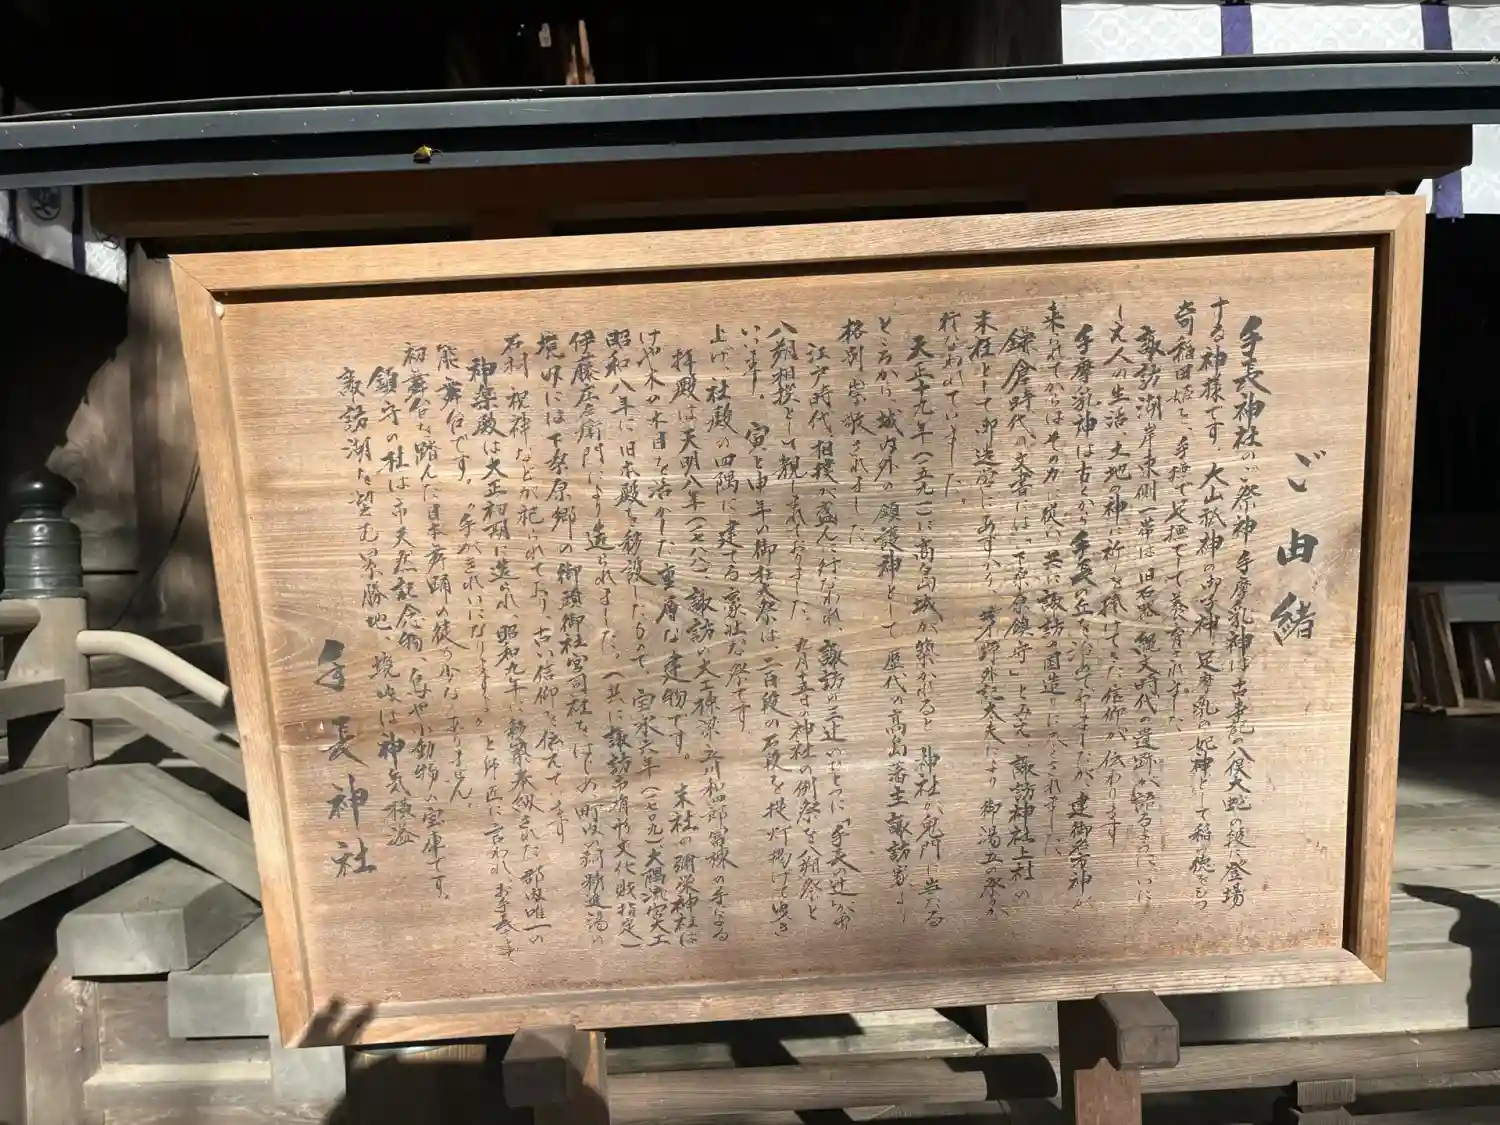 ご由緒
手長神社のご祭神 手摩乳神は古事記の八俣大蛇の段に登場
する神様です。大山祇神の御子神、足摩乳の妃神として稲穂をもつ
奇稲田姫を、手撫で足撫でして養育されました。
諏訪湖岸東側一帯は旧石器、縄文時代の遺跡が語るように、いに
しえ人の生活、土地の神に祈りを捧げてきた信仰が伝わります
手摩乳神は古とから手長の丘を治めておりましたが、建御名方神が
来られてからはその力に従い共に諏訪の国造りに尽くされました。
鎌倉時代の文書には「下桑原鎮守」とみえ、諏訪神社上社の
末社として御造営にあずかり 茅野外記太夫により 御湯立の祭りが
行なわれていました。
天正十九年(一五九一)に高島城が築かれると 神社が鬼門に当たる
ところから、城内外の鎮護神として 歴代の高島藩主諏訪家より
格別崇敬されました。
江戸時代、相撲が盛んに行なわれ、諏訪の三辻のひとつに「手長の辻」が
八朔相撲として親しまれておりました。九月十五日の神社の例祭を八朔祭と
います。 寅と申年の御柱大祭は、二百段の石段を提灯掲げて曳き
上げ、社殿の四隅に建てる豪壮な祭です。
拝殿は天明八年(一七八八)、諏訪の大工棟梁 立川和四郎冨棟の手による
けやき木の木目を活かした重厚な建物です。 末社の彌栄神社は
昭和八年に旧本殿を移設したもので 宝永六年(一七〇九)、大隅流宮大工
伊藤庄左衛門により造られました。(共に諏訪市有形文化財指定)
境内には下桑原郷の御頭御社宮司社をはじめ 町内の 精進湯の
石祠、祝神などが祀られており、古い信仰を伝えてます
神楽殿は大正初期に造られ、昭和九年に移築奉納された、郡内唯一の
能舞台です。"手がきれいになりますよ"と師匠に言われ、お手長さま
初舞台を踏んだ日本舞踊の徒も少なくありません。
鎮守の杜は市天然記念物、鳥や小動物の宝庫です。
諏訪湖を望む景勝地、境内は神気横溢
手長神社